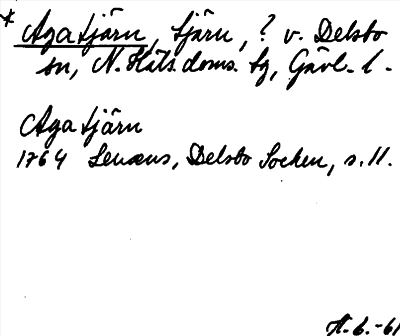 * Agatjärn, tjärn, ? v. Delsbo
sn, N. Häls. doms. tg, Gävl. l.
Agatjärn
1764 Lenæus, Delsbo Socken, s. 11.